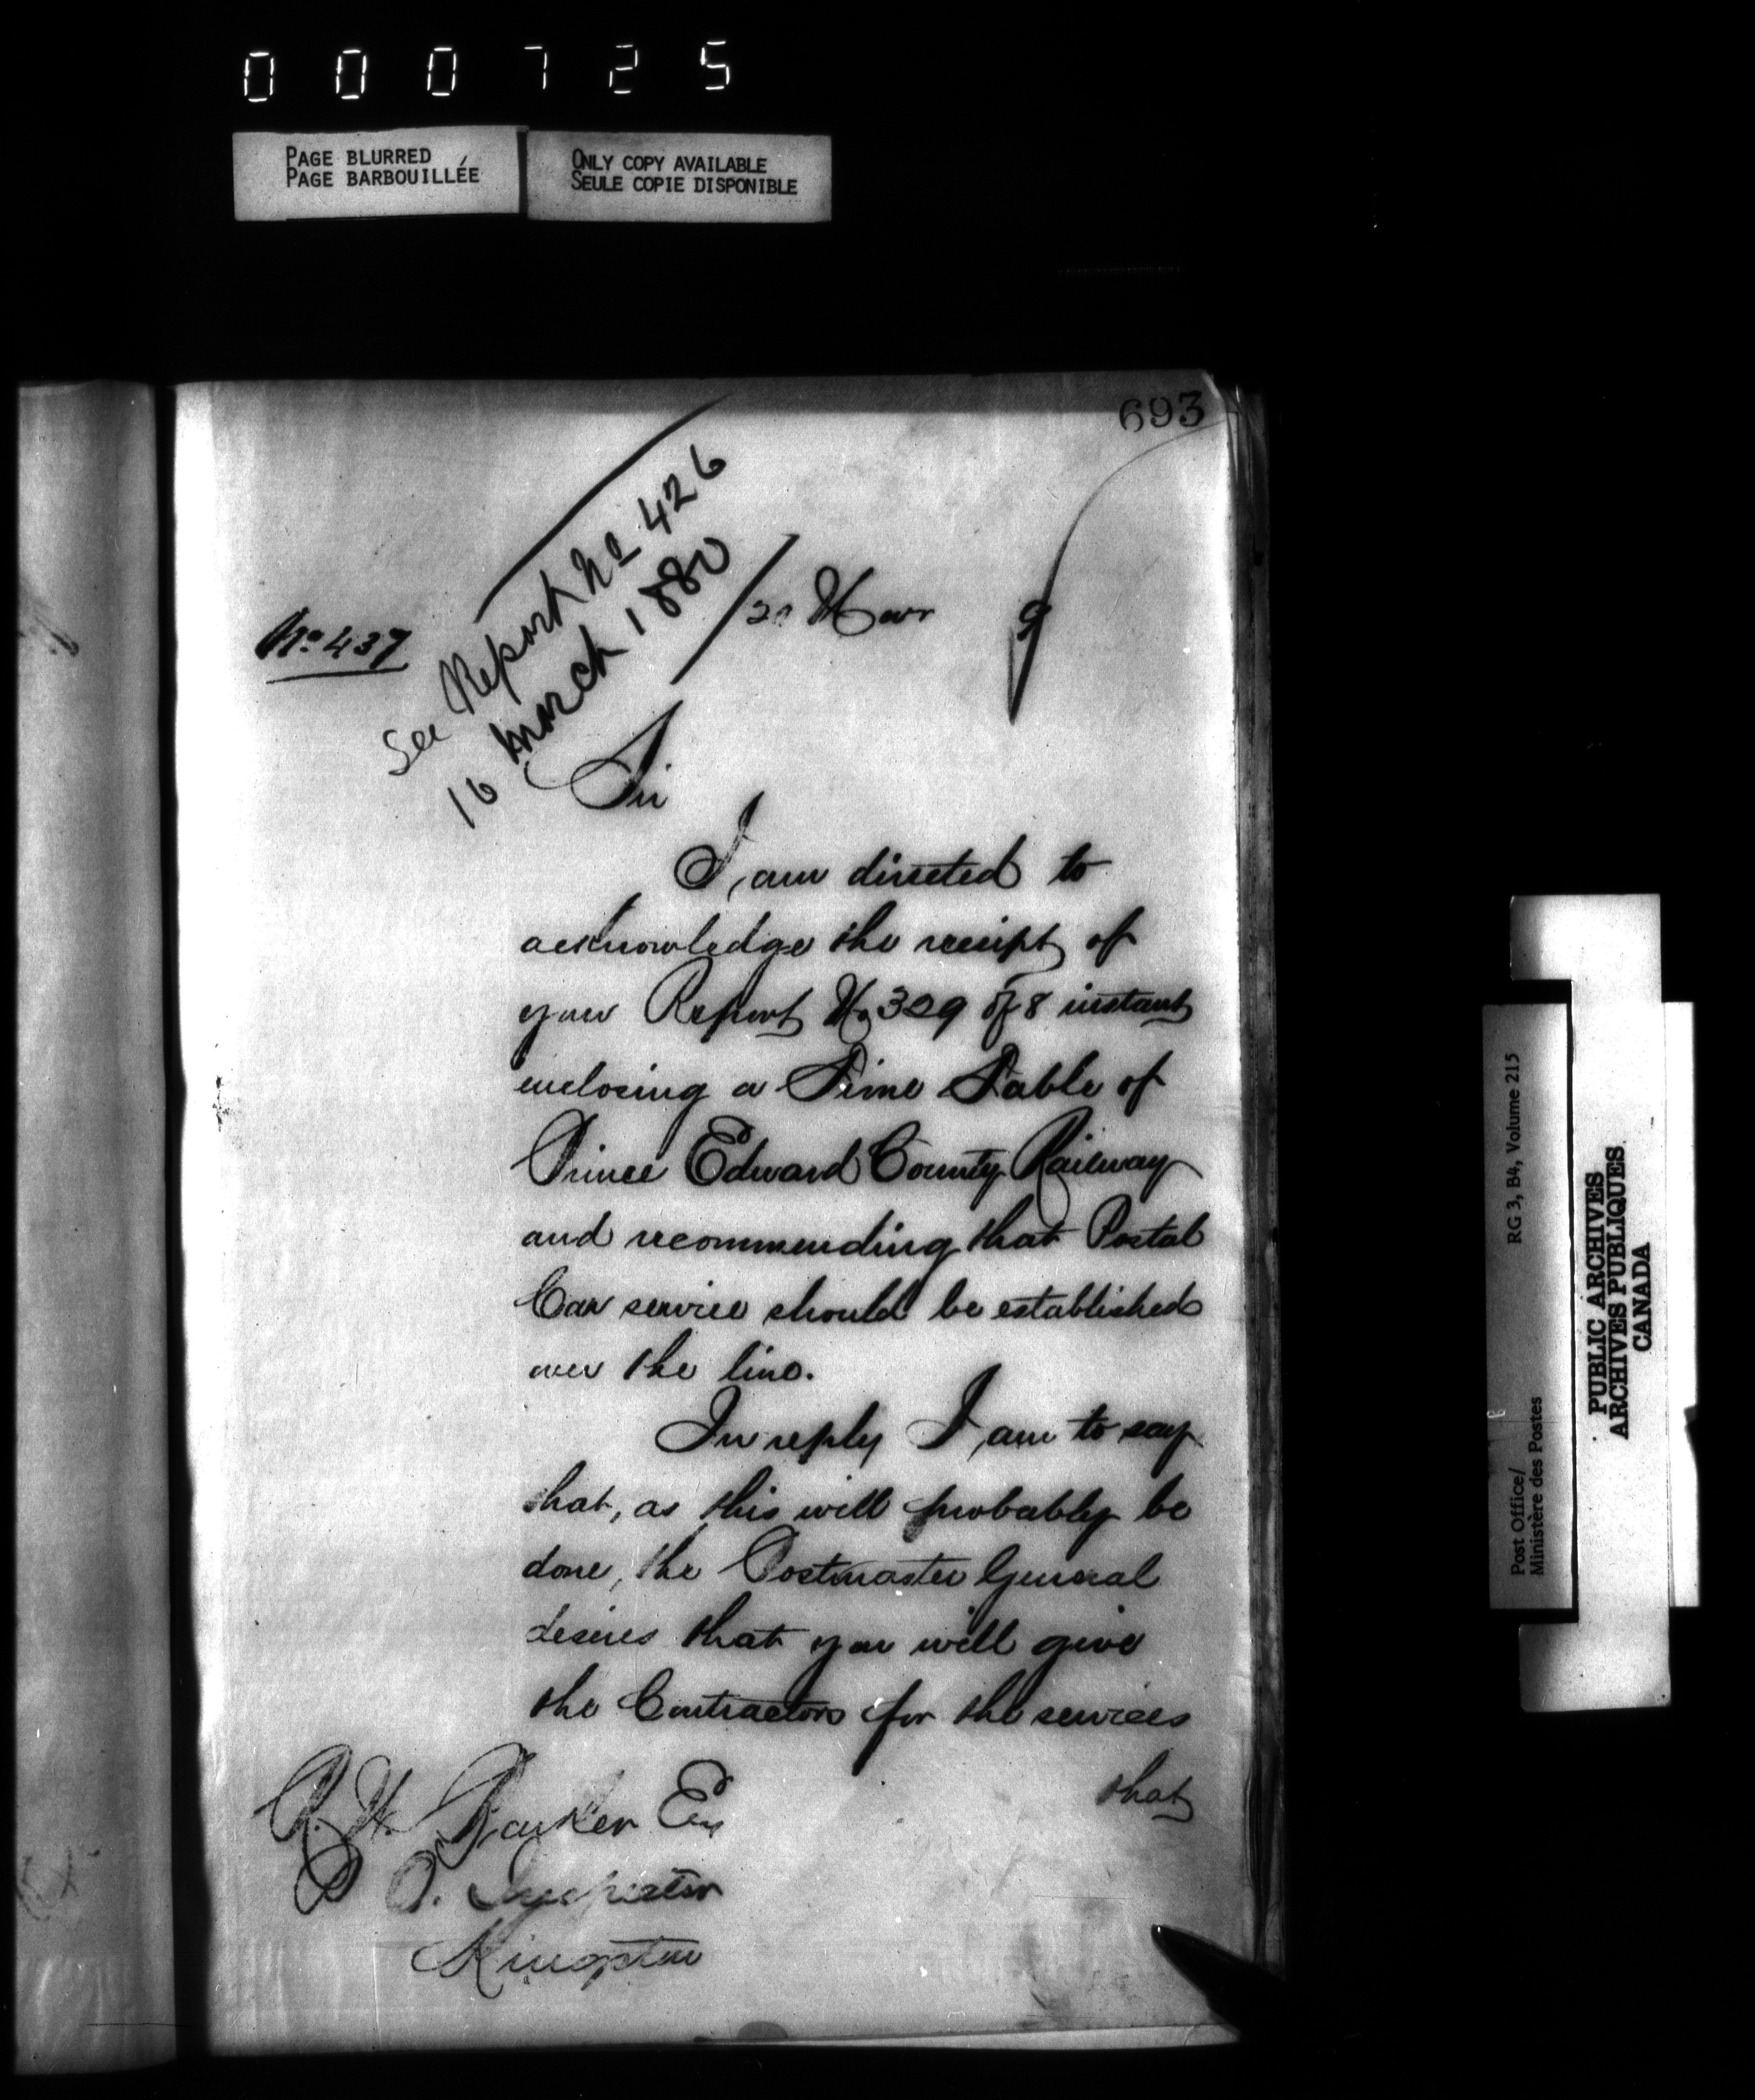 000725
PAGE BLURRED
PAGE BARBOUILLÉE
ONLY COPY AVAILABLE
SEULE COPIE DISPONIBLE
693
See Report No 426
16 March 1880
No 437
9
Sir
I am directed to
acknowledge the receipt of
your Report No 329 of 8 instant
enclosing a Time Table of
Prince Edward County Railway
and recommending that Postal
Car service should be established
over the line.
In reply I am to say
that, as this will probably be
done, the Postmaster General
desires that you will give
the Contractors for the services
that
R. W. Barker Esq
P. O. Inspector
Kingston
Post Office/
Ministère des Postes
RG 3, B4, Volume 215
PUBLIC ARCHIVES
ARCHIVES PUBLIQUES
CANADA